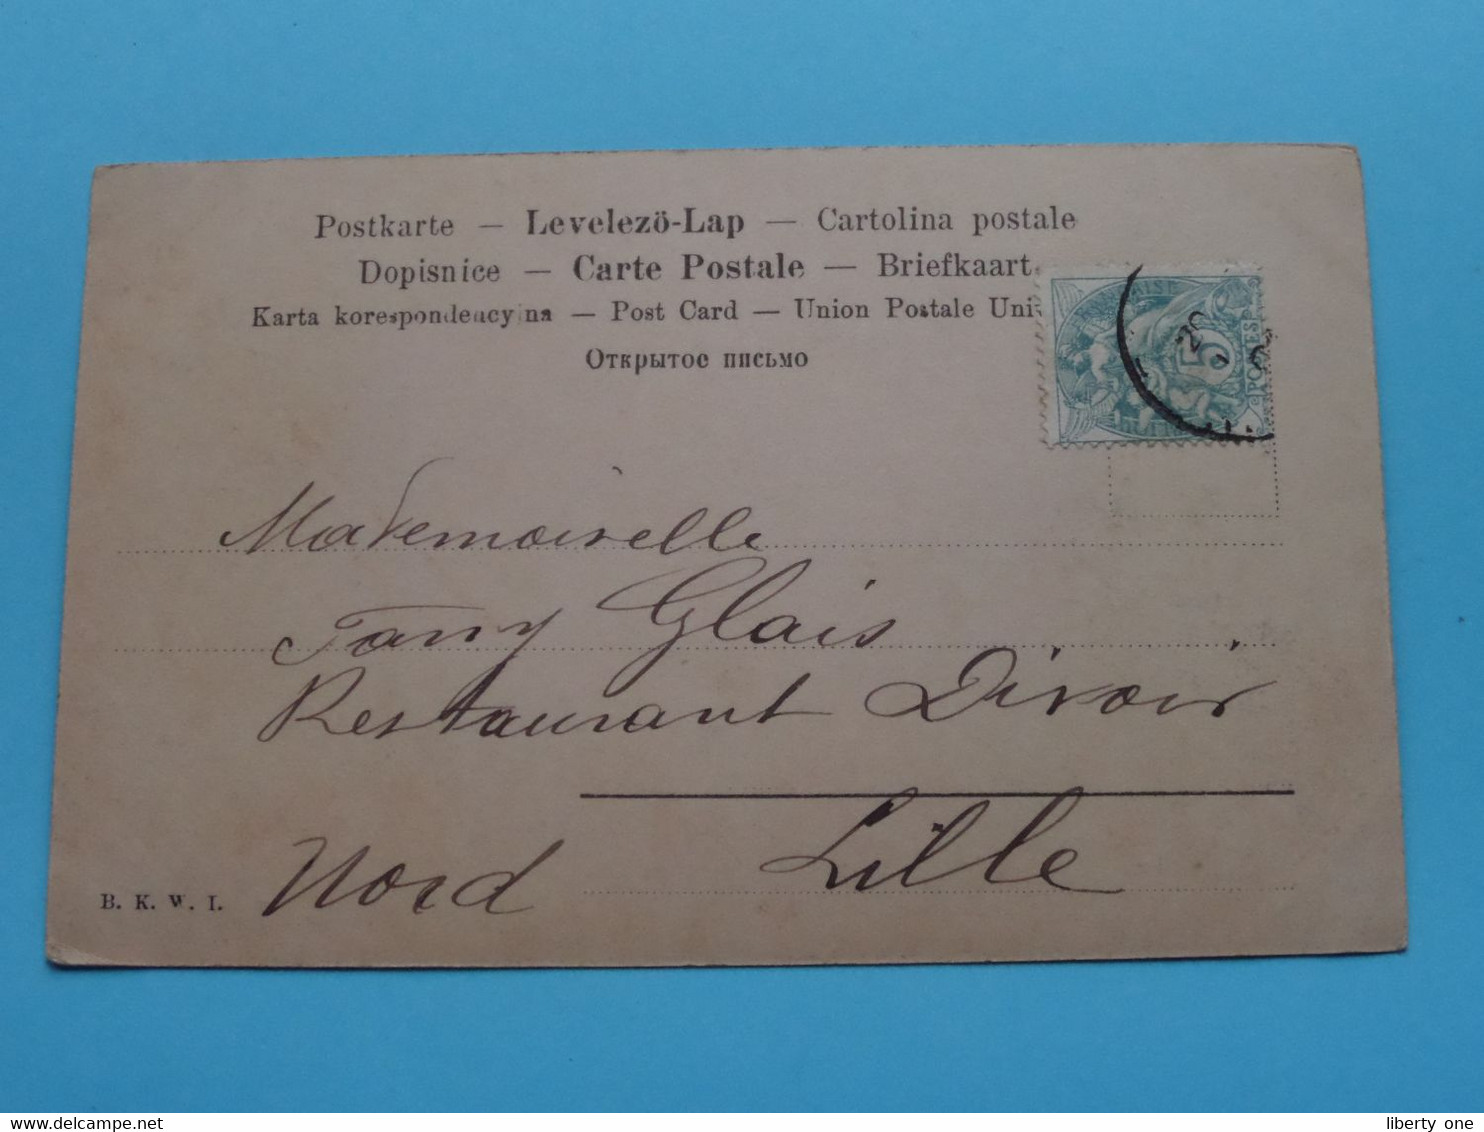 Postkarte — Levelező-Lap — Cartolina postale
Dopisnice — Carte Postale — Briefkaart
Karta korespondencyjna — Post Card — Union Postale Uni
Открытое письмо
AISE
5
POSTES
Mademoiselle
Fany Glais
Restaurant Divoir
Lille
Nord
B. K. W. I.
delcampe.net
liberty one